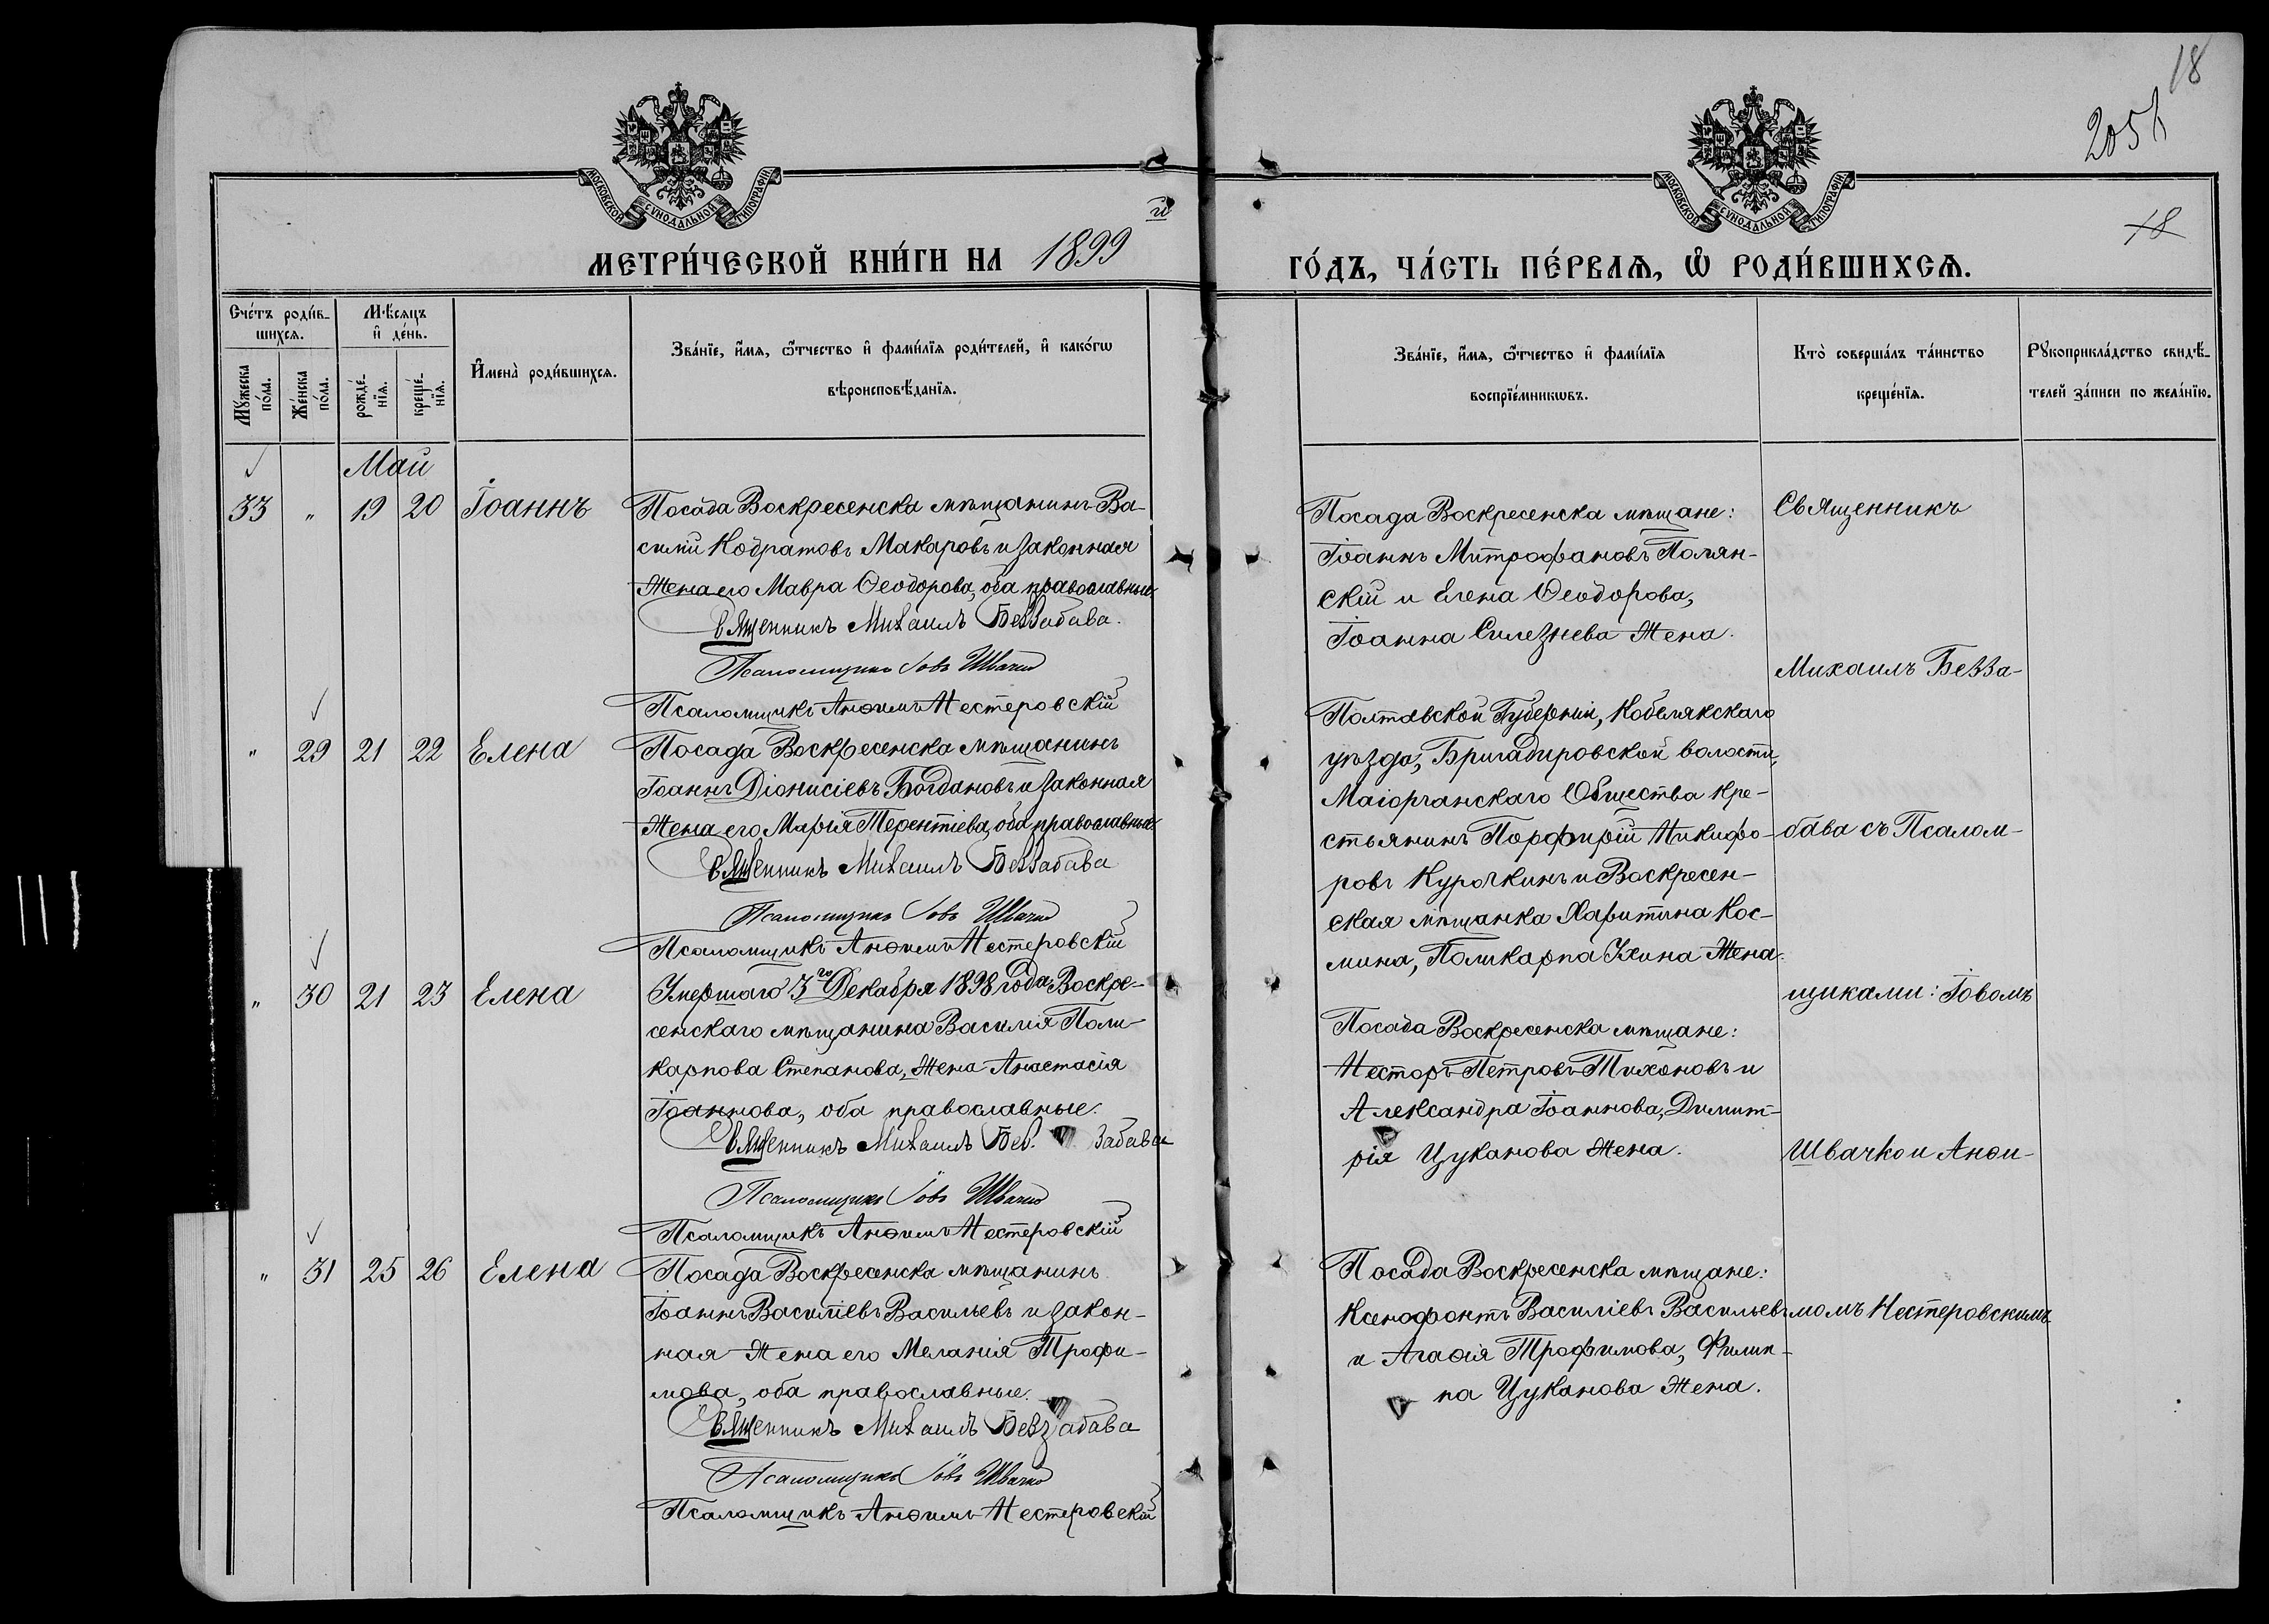 18
205
18
МОСКОВСКОЙ СѴНОДАЛЬНОЙ ТИПОГРАФІИ
МОСКОВСКОЙ СѴНОДАЛЬНОЙ ТИПОГРАФІИ
МЕТРИ́ЧЕСКОЙ КНИ́ГИ НА 1899й
ГО́ДЪ, ЧА́СТЬ ПЕ́РВАѦ, Ѡ РОДИ́ВШИХСѦ.
Сче́тъ роди́в-
шихсѧ.
Мѣ́сѧцъ
и҆ де́нь.
Мꙋ́жеска
по́ла.
Же́нска
по́ла.
рожде́-
нїѧ.
креще́-
нїѧ.
И҆мена̀ роди́вшихсѧ.
Зва́нїе, и҆́мѧ, ѻ҆́тчество и҆ фами́лїѧ роди́телей, и҆ како́гѡ
вѣроисповѣ́данїѧ.
Зва́нїе, и҆́мѧ, ѻ҆́тчество и҆ фами́лїѧ
воспрїе́мникѡвъ.
Кто̀ соверша́лъ та́инство
креще́нїѧ.
Рꙋкоприкла́дство свидѣ́-
телей за́писи по жела́нїю.
Май
33 " 19 20 Іоаннъ
Посада Воскресенска мѣщанинъ Ва-
силій Кодратовъ Макаровъ и законная
жена его Мавра Ѳеодорова, оба православные.
Священникъ Михаилъ Беззабава.
Псаломщикъ Іовъ Швачко
Псаломщикъ Анѳимъ Нестеровскій
Посада Воскресенска мѣщане:
Іоаннъ Митрофановъ Полян-
скій и Елена Ѳеодорова,
Іоанна Силезнева жена.
" 29 21 22 Елена
Посада Воскресенска мѣщанинъ
Іоаннъ Діонисіевъ Богдановъ и законная
жена его Марія Терентіева, оба православные.
Священникъ Михаилъ Беззабава
Псаломщикъ Іовъ Швачко
Псаломщикъ Анѳимъ Нестеровскій
Полтавской Губерніи, Кобелякскаго
уѣзда, Бригадировской волости,
Маіорчанскаго Общества кре-
стьянинъ Порфирій Никифо-
ровъ Курочкинъ и Воскресен-
ская мѣщанка Харитина Кос-
мина, Поликарпа Ухина жена.
" 30 21 23 Елена
Умершаго 3го Декабря 1898 года Воскре-
сенскаго мѣщанина Василія Поли-
карпова Степанова, жена Анастасія
Іоаннова, оба православные.
Священникъ Михаилъ Без. забава
Псаломщикъ Іовъ Швачко
Псаломщикъ Анѳимъ Нестеровскій
Посада Воскресенска мѣщане:
Несторъ Петровъ Тихоновъ и
Александра Іоаннова, Димит-
рія Цуканова жена.
" 31 25 26 Елена
Посада Воскресенска мѣщанинъ
Іоаннъ Василіевъ Васильевъ и закон-
ная жена его Меланія Трофи-
мова, оба православные.
Священникъ Михаилъ Беззабава
Псаломщикъ Іовъ Швачко
Псаломщикъ Анѳимъ Нестеровскій
Посада Воскресенска мѣщане:
Ксенофонтъ Василіевъ Васильевъ
и Агаѳія Трофимова, Филип-
па Цуканова жена.
Священникъ
Михаилъ Безза-
бава съ Псалом-
щиками: Іовомъ
Швачко и Анѳи-
момъ Нестеровскимъ